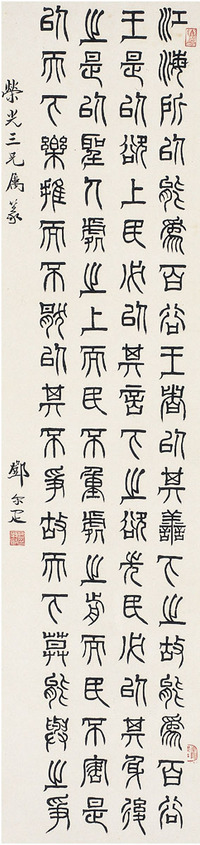 江海所以能為百谷王者以其善下之故能為百谷
王是以欲上民必以其言下之欲先民必以其身後
之是以聖人處之上而民不重處之前而民不害是
以天下樂推而不厭以其不爭故天下莫能與之爭
榮光三兄屬篆 鄧尔疋